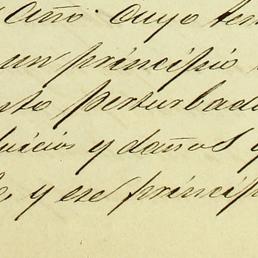 Año. Cuyo ten
un principio
nto perturbad
juicios y daños y
y ese princip